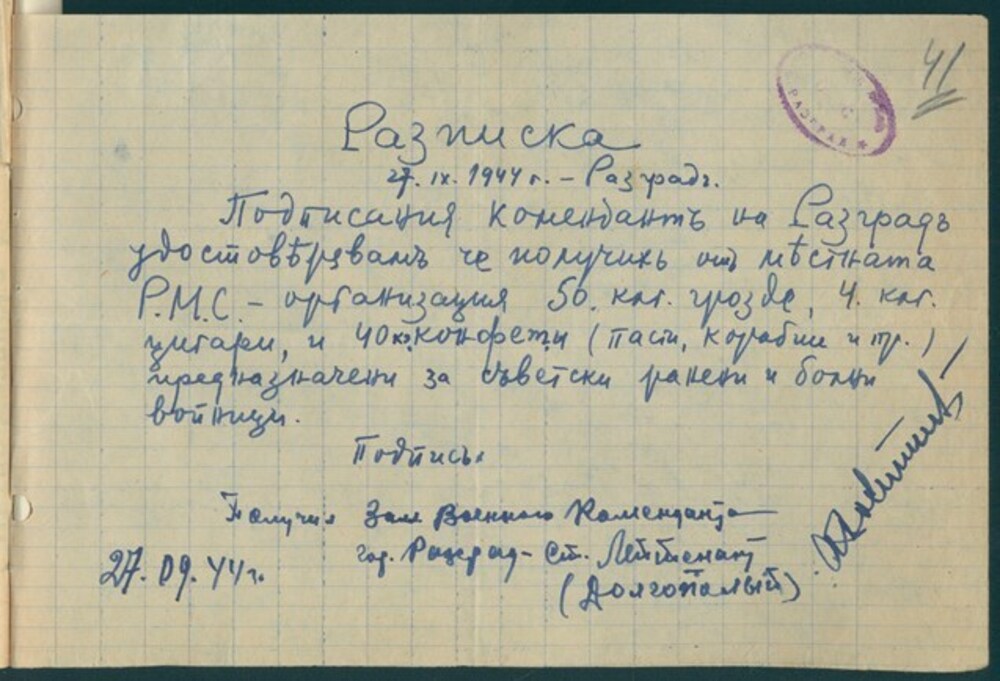 41
РАЗГРАД
Разписка
27. IX. 1944 г. – Разградъ.
Подписания комендантъ на Разградъ
удостовѣрявамъ че получихъ отъ мѣстната
Р.М.С. – организация 50. клг. грозде, 4. клг.
цигари, и 40 кг. конфети (пасти, корабии и пр.)
предназначени за съветски ранени и болни
войници.
Подписъ:
Получил Зам Военного Коменданта
гор. Разград – Ст. Лейтенант
27. 09. 44 г.
(Долгополый)